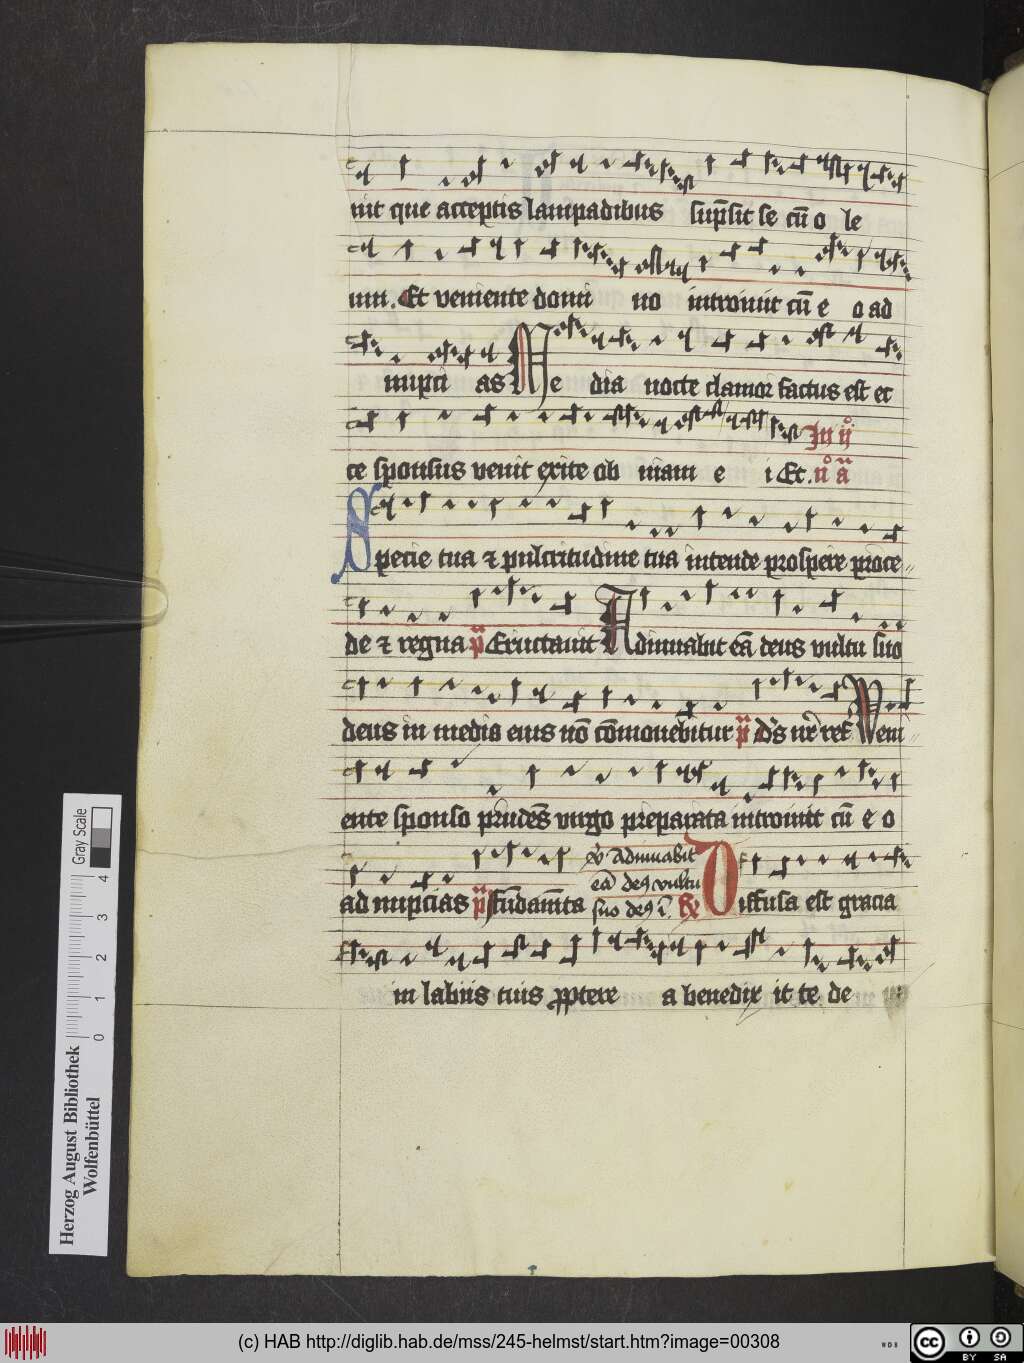 nit que acceptis lampadibus sup̄sit se cū o le
um. Et veniente domi no introiuit cū e o ad
nupci as Me dia nocte clamor factus est ec
ce sponsus venit exite ob uiam e i Et. In ij° n° ā
Specie tua ⁊ pulcritudine tua intende prospere proce
de ⁊ regna p̄ Eructauit Adiuuabit eā deus vultu suo
deus in medio eius nō cōmouebitur p̄ Ds nr̄ ref Veni
ente sponso prudēs virgo preparata introiuit cū e o
ad nupcias p̄ fūdamīta
v̄ Adiuuabit
eā deꝰ vultu
suo deꝰ ī. R̄
Diffusa est gracia
in labiis tuis ꝓptere a benedix it te de
Gray Scale
0 1 2 3 4
Herzog August Bibliothek
Wolfenbüttel
(c) HAB http://diglib.hab.de/mss/245-helmst/start.htm?image=00308
WDB
cc BY SA